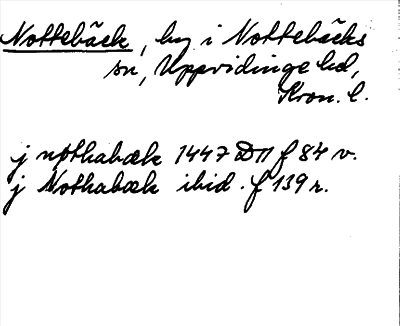 Nottebäck, by i Nottebäcks
sn, Uppvidinge hd,
Kron. l.
j nothabæk 1447 DII f 84 v.
j Nothabæk ibid. f 139 r.